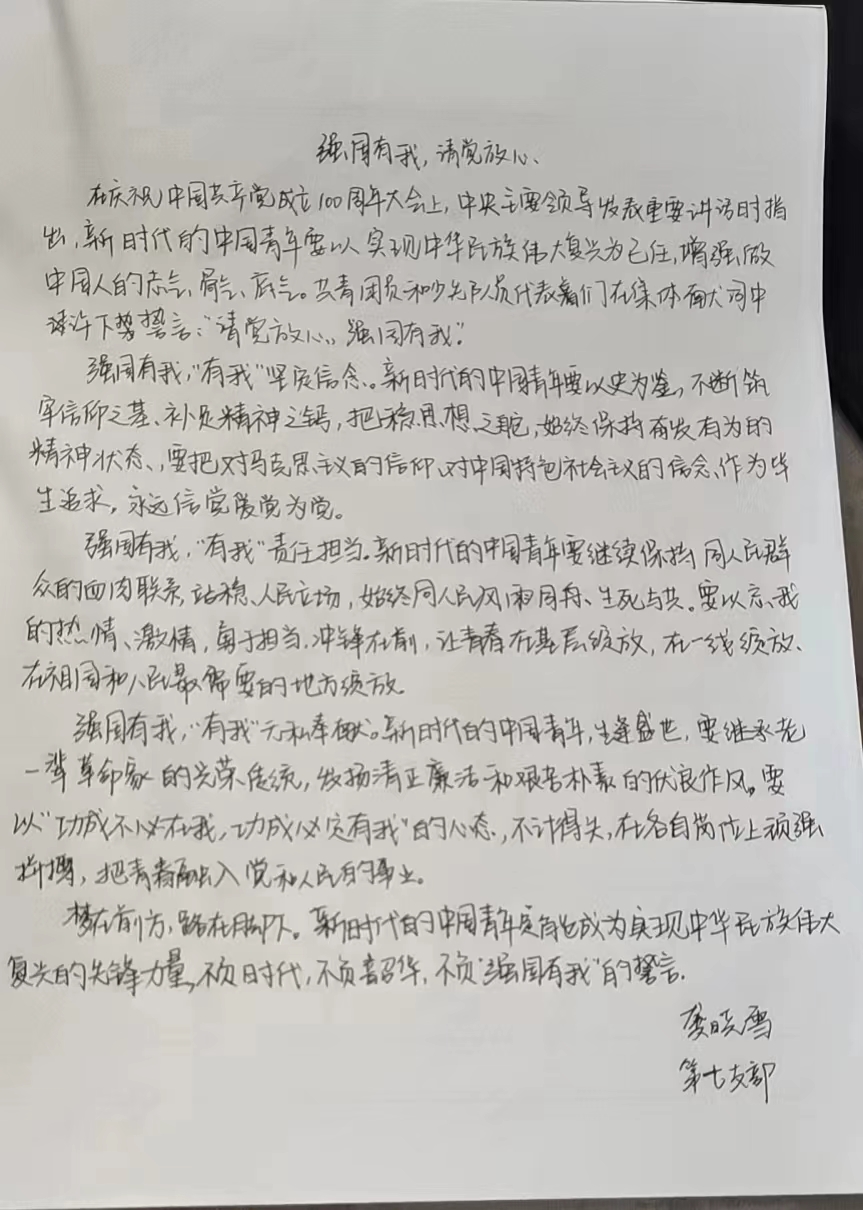 强国有我，请党放心、
在庆祝中国共产党成立100周年大会上，中央主要领导发表重要讲话时指
出，新时代的中国青年要以实现中华民族伟大复兴为己任，增强做
中国人的志气、骨气、底气。共青团员和少先队员代表们在集体献词中
许下誓言：“请党放心，强国有我”。
强国有我，“有我”坚定信念。新时代的中国青年要以史为鉴，不断筑
牢信仰之基、补足精神之钙，把稳思想之舵，始终保持奋发有为的
精神状态，要把对马克思主义的信仰、对中国特色社会主义的信念、作为毕
生追求，永远信党爱党为党。
强国有我，“有我”责任担当。新时代的中国青年要继续保持同人民群
众的血肉联系，站稳人民立场，始终同人民风雨同舟、生死与共。要以忘我
的热情、激情，勇于担当，冲锋在前，让青春在基层绽放，在一线绽放、
在祖国和人民最需要的地方绽放
强国有我，“有我”无私奉献。新时代的中国青年，生逢盛世，要继承老
一辈革命家的光荣传统，发扬清正廉洁和艰苦朴素的优良作风。要
以“功成不必在我，功成必定有我”的心态，不计得失，在各自岗位上顽强
拼搏，把青春融入党和人民的事业。
梦在前方，路在脚下。新时代的中国青年定能成为实现中华民族伟大
复兴的先锋力量，不负时代，不负韶华，不负“强国有我”的誓言.
龚晓雪
第七支部